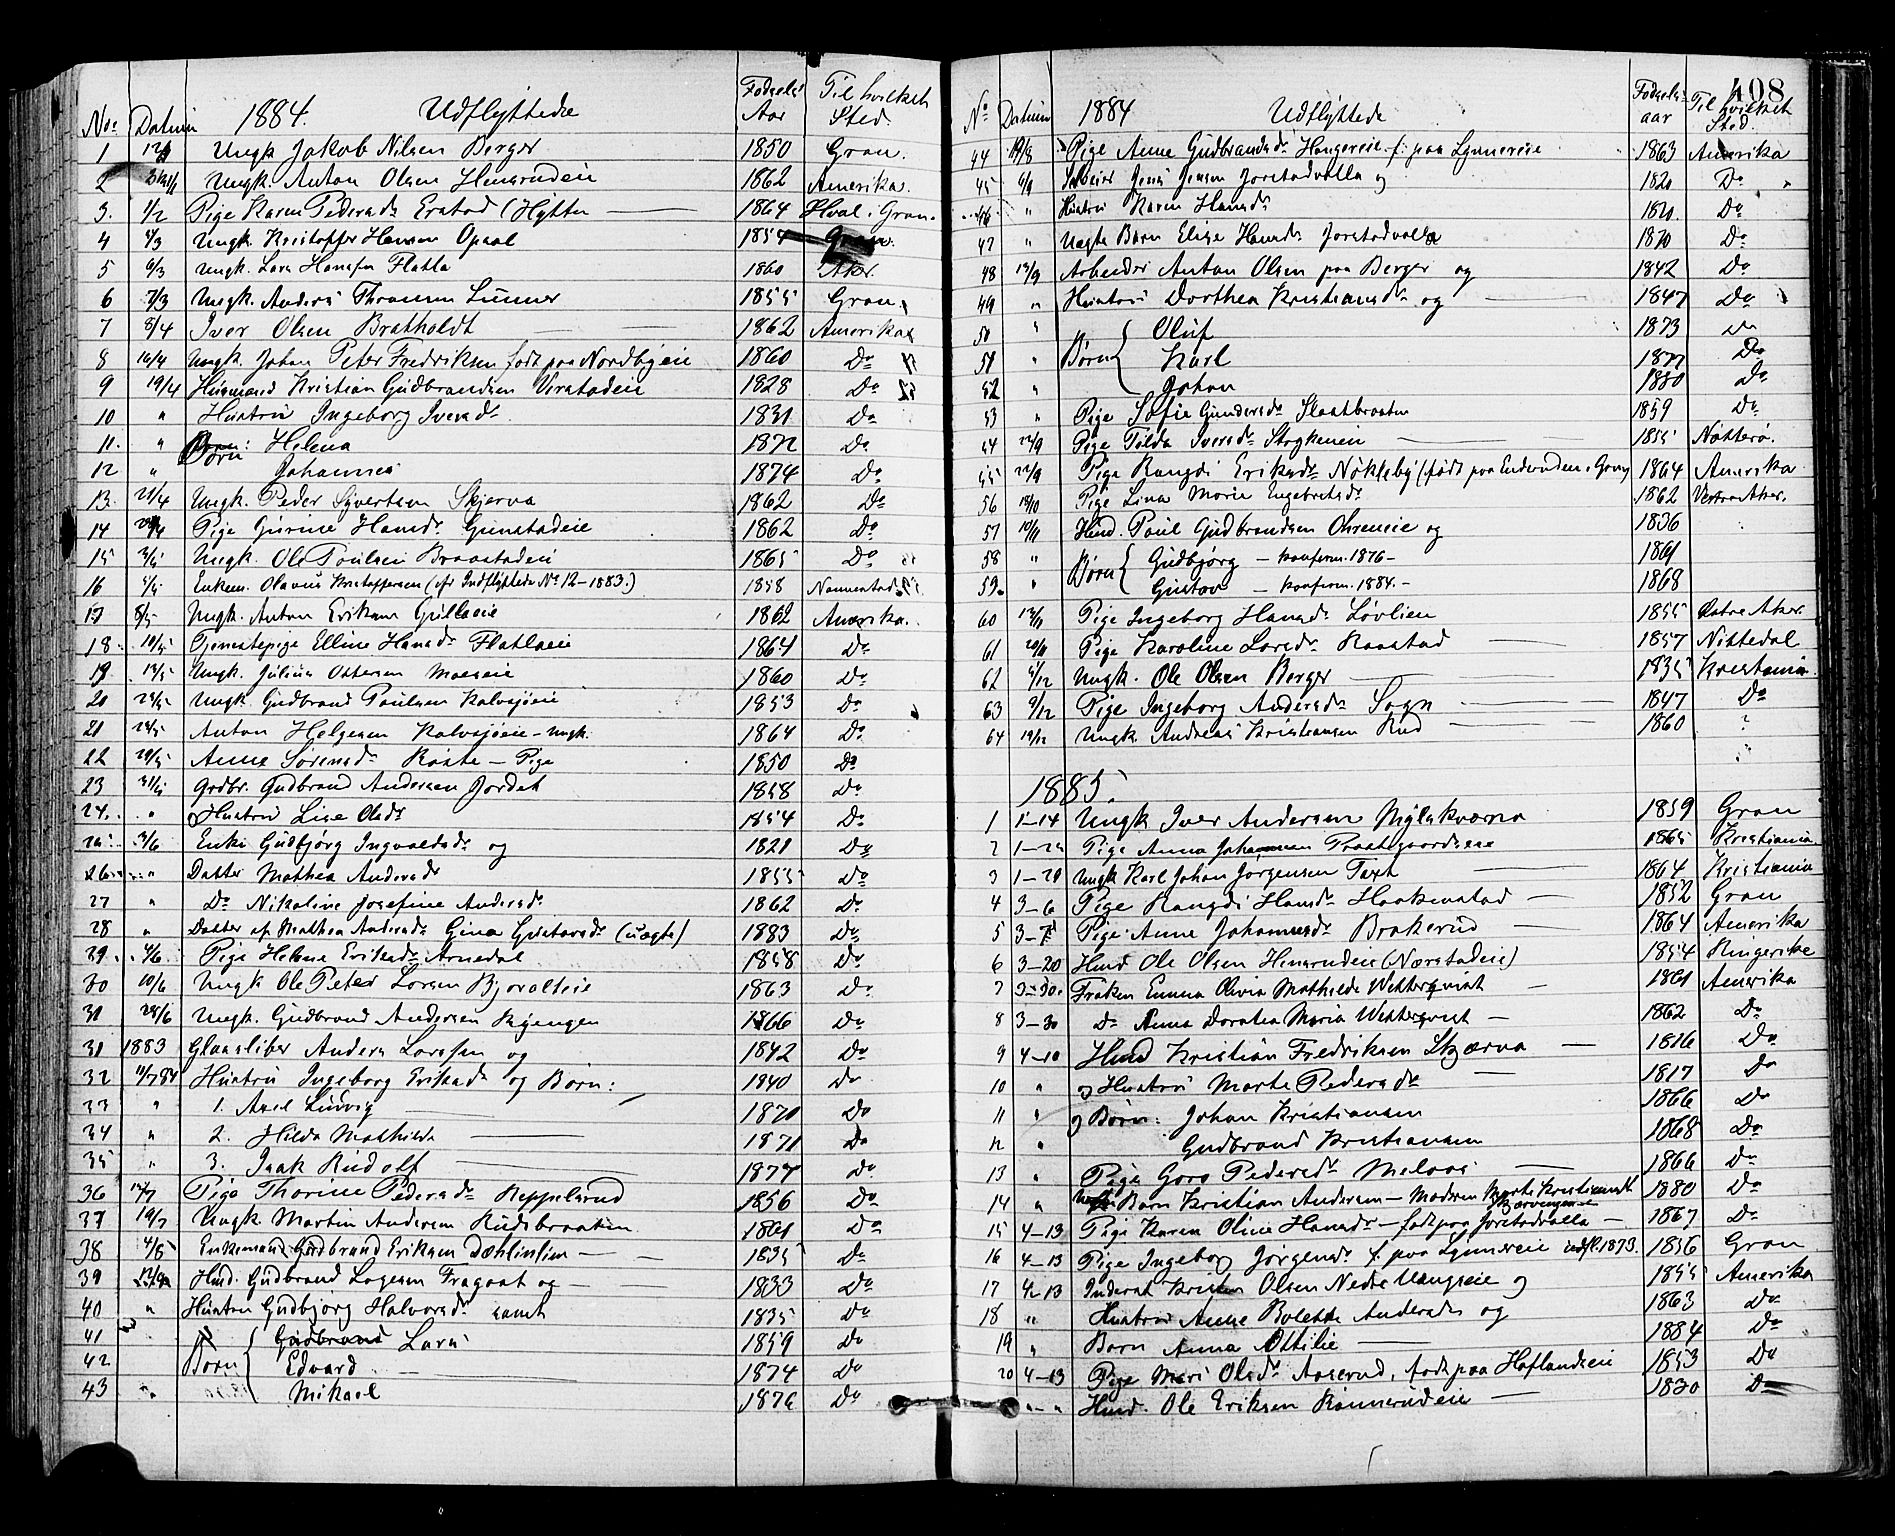 No. Datum 1884. Udflyttede Fødsels Aar Til hvilket Sted.
1 Ungk Jakob Nilsen Berger 1850 Gran.
2 Ungk. Anton Olsen Hensrudeie 1862 Amerika.
3. 1/2 Pige Karen Pedersdr Erstad (Hytten 1864 Hval i Gran.
4 4/3 Ungk. Kristoffer Hansen Opsal 1854 Gran.
5 6/3 Ungk. Lars Hansen Flatla 1860 Aker.
6 7/3 Ungk. Anders Thronsen Lunner 1855 Gran.
7 8/4 Iver Olsen Bratholdt 1862 Amerika
8 16/4 Ungk. Johan Peter Fredriksen født paa Nordbyeie 1860 Do
9 19/4 Husmand Kristian Gudbrandsen Virstadeie 1828 Do
10 " Hustru Ingeborg Iversdr 1831 Do
11. " Børn: Helena 1872 Do
12 " Johannes 1874 Do
13. 21/4 Ungk. Peder Syvertsen Skjerva 1862 Do
14 Pige Gurine Hansdr Grinstadeie 1862 Do
15 3/5 Ungk. Ole Poulsen Braastadeie 1865 Do
16 5/5 Enkem. Olavus Kristoffersen (cfr Indflyttede No 12-1883.) 1858 Nannestad
17 8/5 Ungk. Anton Eriksen Gullaeie 1862 Amerika.
18 10/5 Tjenestepige Elline Hansdr Flatlaeie 1864 Do
19 13/5 Ungk. Julius Ottersen Moeseie 1860 Do
20 23/5 Ungk. Gudbrand Paulsen Kalvsjøeie 1853 Do
21 23/5 Anton Helgesen Kalvsjøeie - Ungk. 1864 Do
22 29/5 Anne Sørensdr Raste - Pige 1850 Do
23 31/5 Grdbr. Gudbrand Andersen Jordet 1858 Do
24. " Hustru Lise Olsdr 1854 Do
25 3/6 Enke Gudbjørg Ingvaldsdr og 1821 Do
26 " Datter Mathea Andersdr 1855 Do
27 " Do Nikoline Josefine Andersdr 1862 Do
28 " Datter af Mathea Andersdr Gina Gustavsdr (uægte) 1883 Do
29 4/6 Pige Helene Eriksdr Arnedal 1858 Do
30 10/6 Ungk Ole Peter Larsen Bjoralteie 1863 Do
31 28/6 Ungk. Gudbrand Andersen Kjøngen 1866 Do
31 1883 Glassliber Anders Larssen og 1842 Do
32 11/7 84 Hustru Ingeborg Eriksdr og Børn: 1840 Do
33 " 1. Axel Ludvig 1870 Do
34 " 2. Hilda Mathilde 1871 Do
35 " 3. Isak Rudolf 1877 Do
36 12/7 Pige Thorine Pedersdr Keppelsrud 1856 Do
37 19/7 Ungk. Martin Andersen Rudsbraaten 1861 Do
38 4/8 Enkemand Gudbrand Eriksen Dæhlinlien 1835 Do
39 Hmd: Gudbrand Lagesen Fragaat og 1833 Do
40 " Hustru Gudbjørg Halvorsdr samt 1835 Do
41 Børn { Gudbrand Lars 1859 Do
42 Edvard 1874 Do
43 " Mikael 1876 Do
408
No Datum 1884 Udflyttede Fødsels aar Til hvilket Sted.
44 19/8 Pige Anne Gudbrandsdr Haugereie f. paa Lynnereie 1863 Amerika
45 6/9 Selveier Jens Jensen Jorstadvolla og 1820 Do
46 " Hustru Karen Hansdr 1820. Do
47 " Uægte Barn Elise Hansdr Jorstadvolla 1870 Do
48 12/9 Arbeider Anton Olsen paa Berger og 1842 Do
49 " Hustru Dorthea Kristiansdr og 1847 Do
50 " Børn { Oluf 1873 Do
51 " Karl 1877 Do
52 " Johan 1880 Do
53 " Pige Sofie Gundersdr Slaatbraaten 1859 Do
54 22/9 Pige Tilda Iversdr Strykeneie 1855 Nøtterø.
55 22/9 Pige Rangdi Eriksdr Nøkleby (født paa Endruden i Gran) 1864 Amerika
56 18/10 Pige Lina Marie Engebretsdr 1862 Vestre Aker.
57 10/11 Hmd. Poul Gudbrandsen Ohreneie og 1836
58 " Børn { Gudbjørg - konfirm. 1876 - 1861
59. " Gustav - konfirm. 1884. - 1868
60 12/11 Pige Ingeborg Hansdr Løvlien 1855 Østre Aker.
61 20/11 Pige Karoline Larsdr Raastad 1857 Nittedal
62 5/12 Ungk. Ole Olsen Berger 1835 Kristiania
63 9/12 Pige Ingeborg Andersdr Sogn 1847 Do
64 19/12 Ungk. Andreas Kristiansen Rud 1860 ?
1885.
1 1-14 Ungk Iver Andersen Mylskværna 1859 Gran
2 Pige Anna Johannsen Præstgaardseie 1865 Kristiania
3 1-29 Ungk Karl Johan Jørgensen Tayt 1864 Kristiania
4 3-6 Pige Rangdi Hansdr Haakenstad 1852 Gran
5 Pige Anne Johannesdr Brakerud 1864 Amerika
6 3-20 Hmd Ole Olsen Hensrudeie (Nærstadeie) 1854 Ringerike
7 3-30. Frøken Emma Olivia Mathilde Wetterqvist 1861 Amerika
8 3-30 Do Anna Dorotea Maria Wetterqvist 1862 Do
9 4-10 Hmd Kristian Fredriksen Skjærva 1816 Do
10 " og Hustru Marte Pedersdr 1817 Do
11 " og Børn: Johan Kristiansen 1866 Do
12 " Gudbrand Kristiansen 1868 Do
13 " Pige Goro Pedersdr Melaas 1866 Do
14 " Barn Kristian Andersen - Moderen Marte Kristiansdr Skjervengen 1880 Do
15 4-13 Pige Karen Oline Hansdr - født paa Jorstadvolla - 1867 Do
16 4-13 Pige Ingeborg Jørgensdr f. paa Lynnereie indfl. 1873. 1856 Gran
17 4-13 Inderst Kristen Olsen Nedre Vangseie og 1855 Amerika
18 " Hustru Anne Bolette Andersdr og 1863 Do
19 " Barn Anna Ottilie 1884 Do
20 4-13 Pige Mari Olsdr Aaserud, født paa Haflandseie 1853 Do
" - " Hmd. Ole Eriksen Rønnerudeie 1830 Do